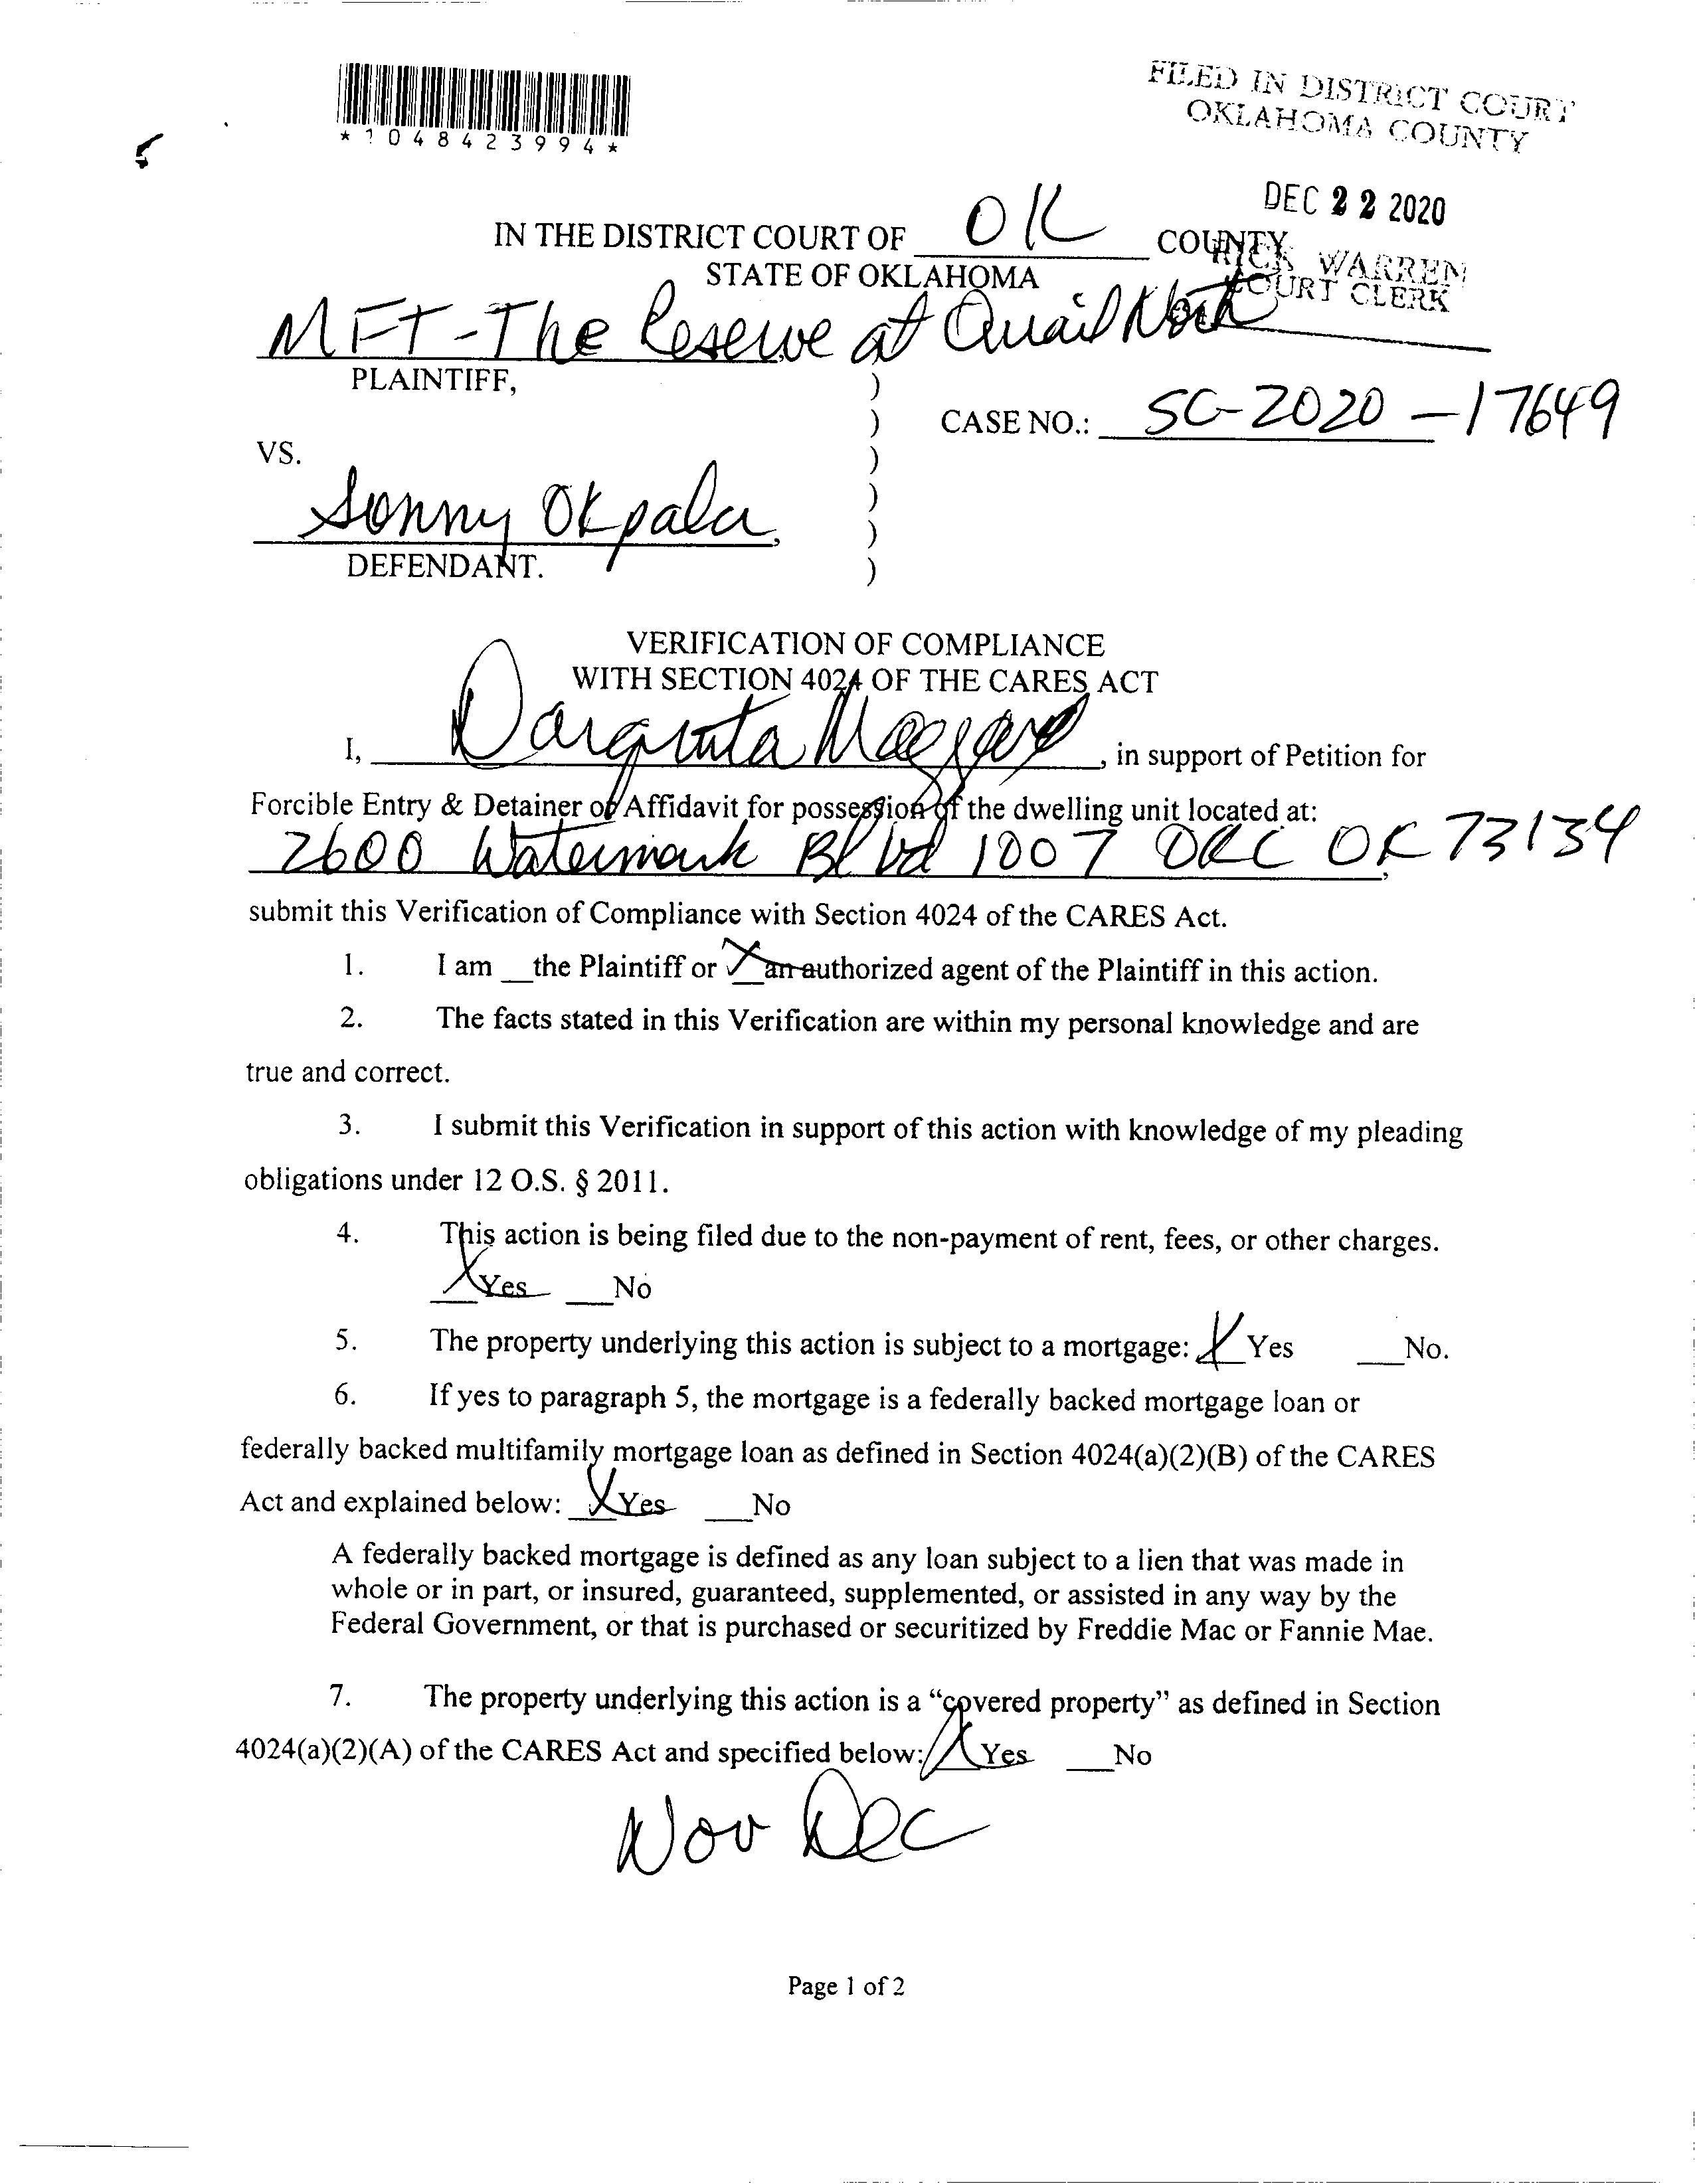 *1048423994*
FILED IN DISTRICT COURT
OKLAHOMA COUNTY
DEC 22 2020
RICK WARREN
COURT CLERK
IN THE DISTRICT COURT OF OK COUNTY
STATE OF OKLAHOMA
MFT-The Reserve at Quail North
PLAINTIFF,
)
) CASE NO.: SC-2020-17649
VS. )
)
Sonny Okpala, )
DEFENDANT. )
VERIFICATION OF COMPLIANCE
WITH SECTION 4024 OF THE CARES ACT
I, , in support of Petition for
Forcible Entry & Detainer or Affidavit for possession of the dwelling unit located at:
2600 Watermark Blvd 1007 OKC OK 73134,
submit this Verification of Compliance with Section 4024 of the CARES Act.
1. I am __the Plaintiff or X an authorized agent of the Plaintiff in this action.
2. The facts stated in this Verification are within my personal knowledge and are
true and correct.
3. I submit this Verification in support of this action with knowledge of my pleading
obligations under 12 O.S. § 2011.
4. This action is being filed due to the non-payment of rent, fees, or other charges.
X Yes ___No
5. The property underlying this action is subject to a mortgage: X Yes ___No.
6. If yes to paragraph 5, the mortgage is a federally backed mortgage loan or
federally backed multifamily mortgage loan as defined in Section 4024(a)(2)(B) of the CARES
Act and explained below: X Yes ___No
A federally backed mortgage is defined as any loan subject to a lien that was made in
whole or in part, or insured, guaranteed, supplemented, or assisted in any way by the
Federal Government, or that is purchased or securitized by Freddie Mac or Fannie Mae.
7. The property underlying this action is a “covered property” as defined in Section
4024(a)(2)(A) of the CARES Act and specified below: X Yes ___No
Nov Dec
Page 1 of 2